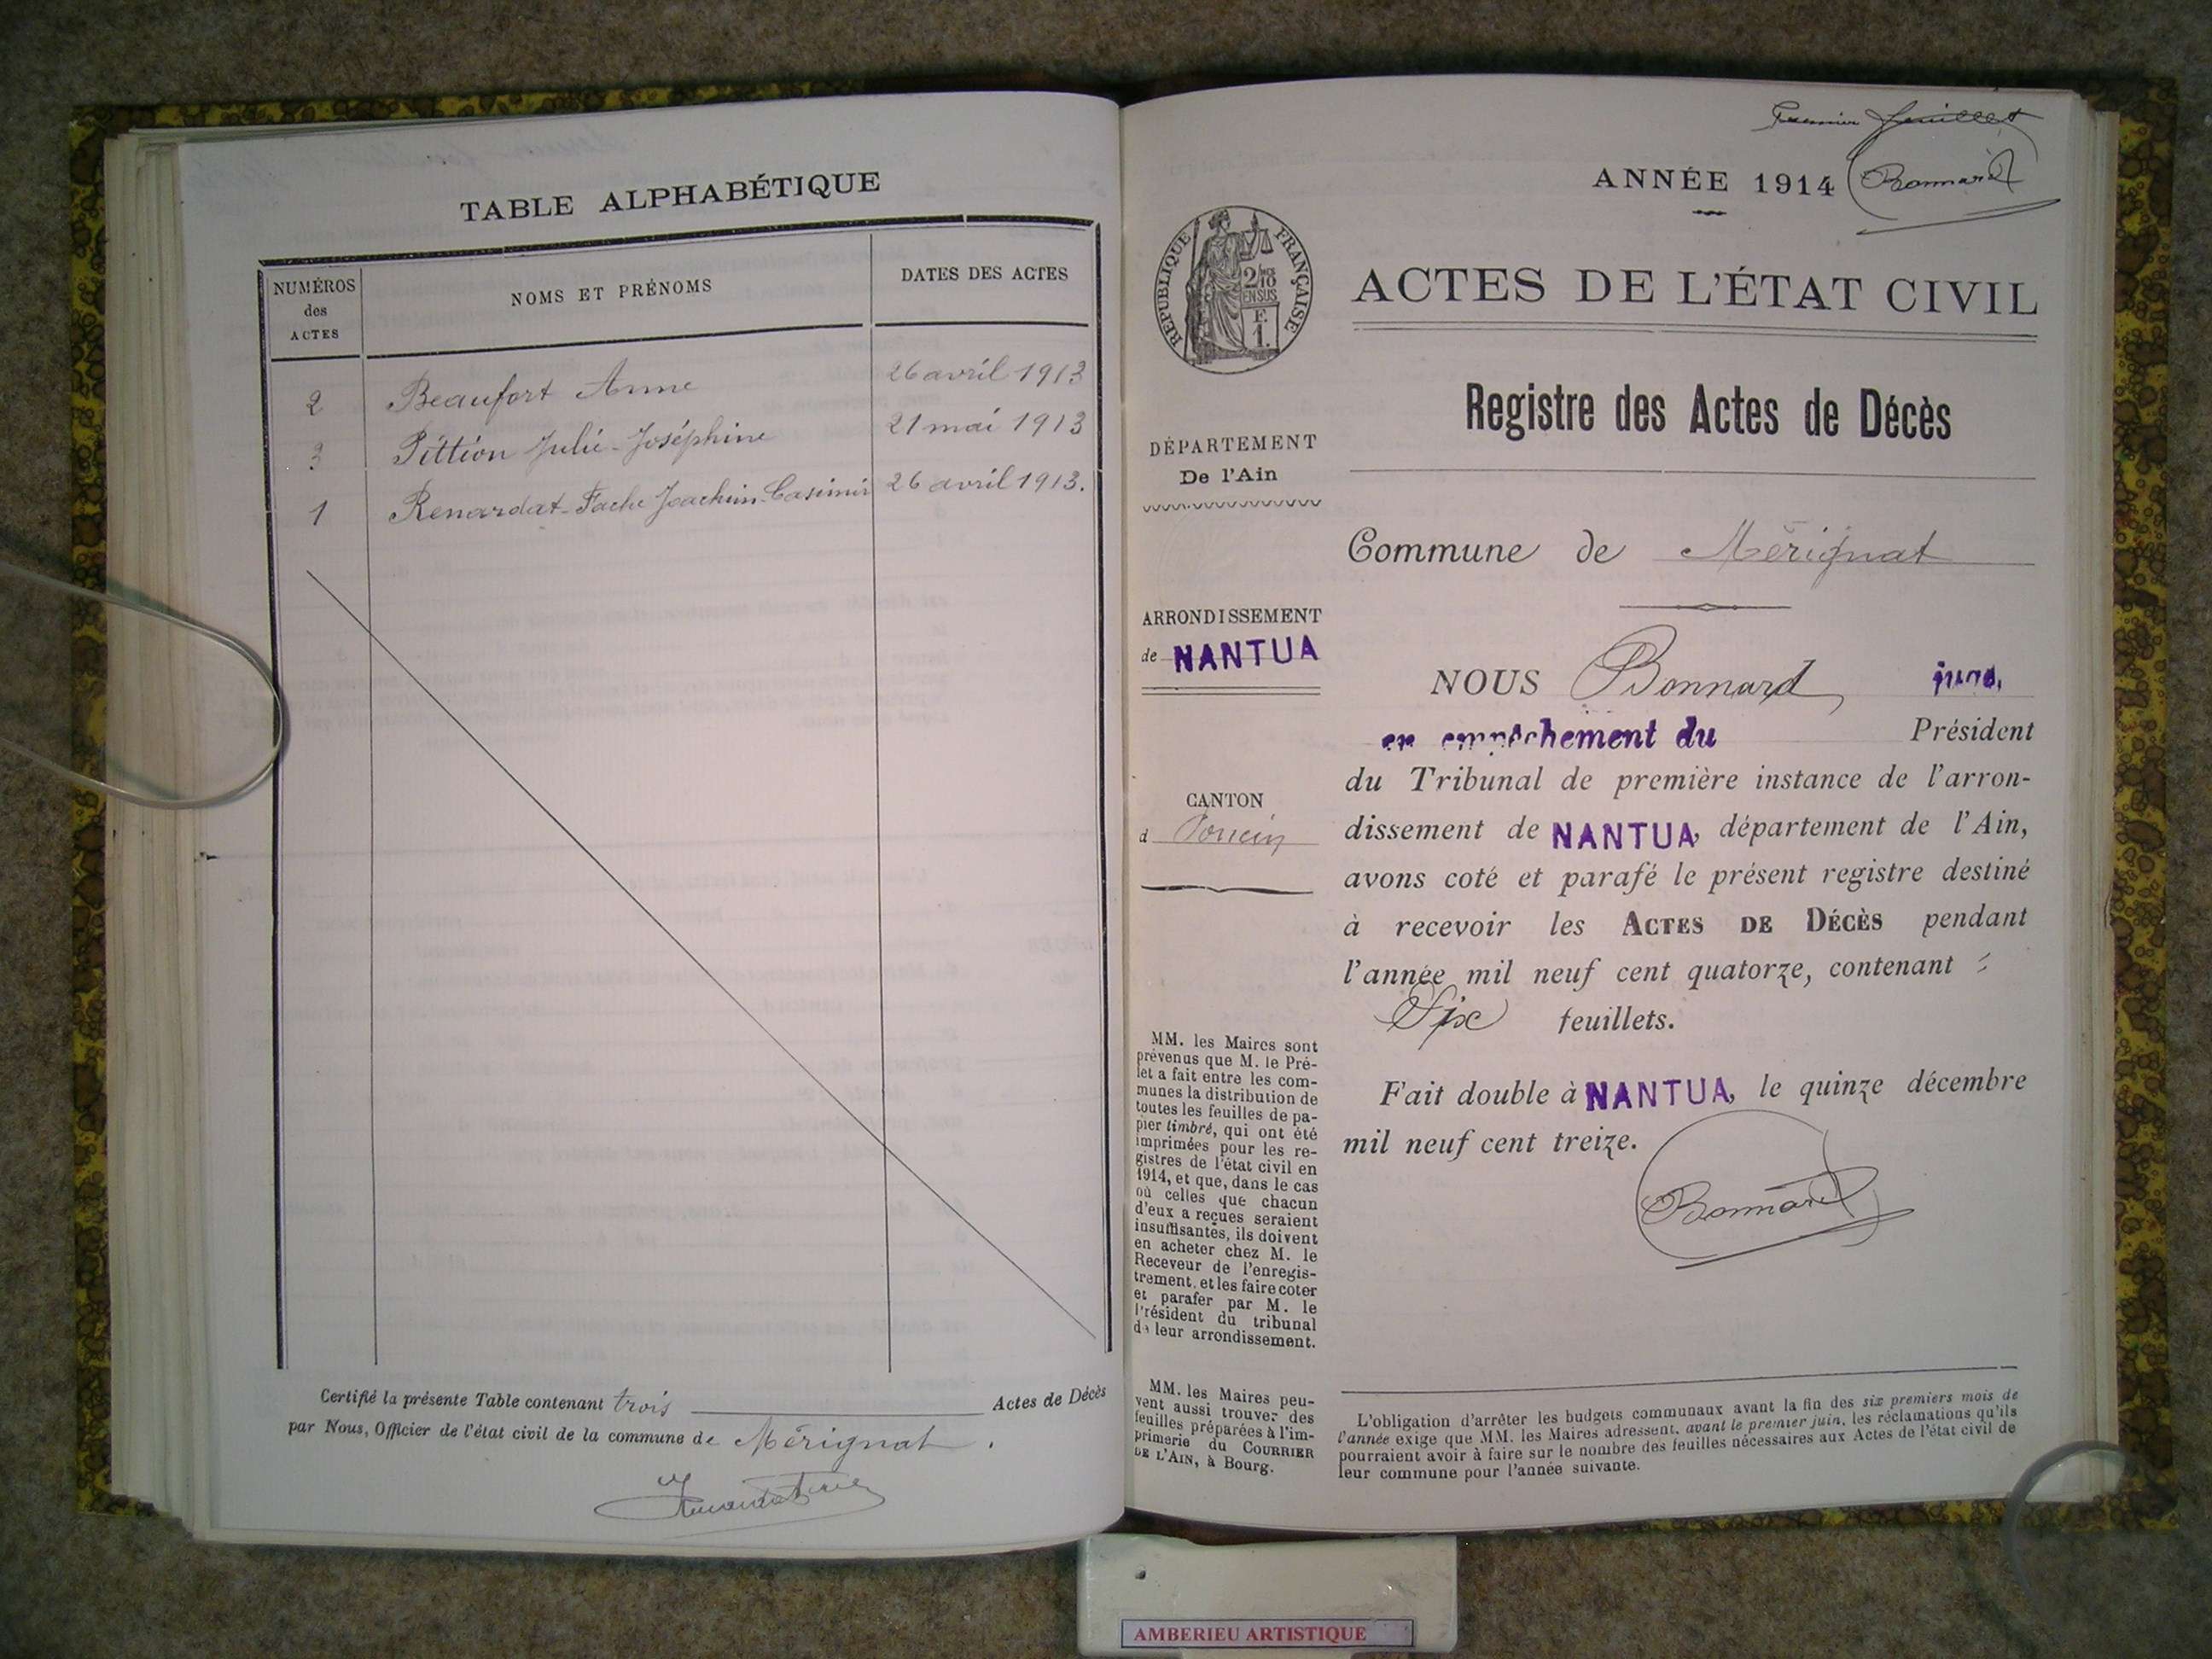 TABLE ALPHABÉTIQUE
NUMÉROS
des
ACTES
NOMS ET PRÉNOMS
DATES DES ACTES
2 Beaufort Anne 26 avril 1913
3 Pittion Julie-Joséphine 21 mai 1913
1 Renardat-Fache Joachim-Casimir 26 avril 1913.
Certifié la présente Table contenant trois Actes de Décès
par Nous, Officier de l'état civil de la commune de Mérignat.
Premier feuillet
Bonnard
ANNÉE 1914
RÉPUBLIQUE FRANÇAISE
2/10
EN SUS
F.
1.
ACTES DE L'ÉTAT CIVIL
Registre des Actes de Décès
DÉPARTEMENT
De l'Ain
Commune de Mérignat
ARRONDISSEMENT
de NANTUA
CANTON
d Poncin
MM. les Maires sont
prévenus que M. le Pré-
fet a fait entre les com-
munes la distribution de
toutes les feuilles de pa-
pier timbré, qui ont été
imprimées pour les re-
gistres de l'état civil en
1914, et que, dans le cas
où celles que chacun
d'eux a reçues seraient
insuffisantes, ils doivent
en acheter chez M. le
Receveur de l'enregis-
trement, et les faire coter
et parafer par M. le
Président du tribunal
de leur arrondissement.
MM. les Maires peu-
vent aussi trouver des
feuilles préparées à l'im-
primerie du COURRIER
DE L'AIN, à Bourg.
NOUS Bonnard, juge,
en empêchement du Président
du Tribunal de première instance de l'arron-
dissement de NANTUA, département de l'Ain,
avons coté et parafé le présent registre destiné
à recevoir les ACTES DE DÉCÈS pendant
l'année mil neuf cent quatorze, contenant
Six feuillets.
Fait double à NANTUA, le quinze décembre
mil neuf cent treize.
Bonnard
L'obligation d'arrêter les budgets communaux avant la fin des six premiers mois de
l'année exige que MM. les Maires adressent, avant le premier juin, les réclamations qu'ils
pourraient avoir à faire sur le nombre des feuilles nécessaires aux Actes de l'état civil de
leur commune pour l'année suivante.
AMBERIEU ARTISTIQUE